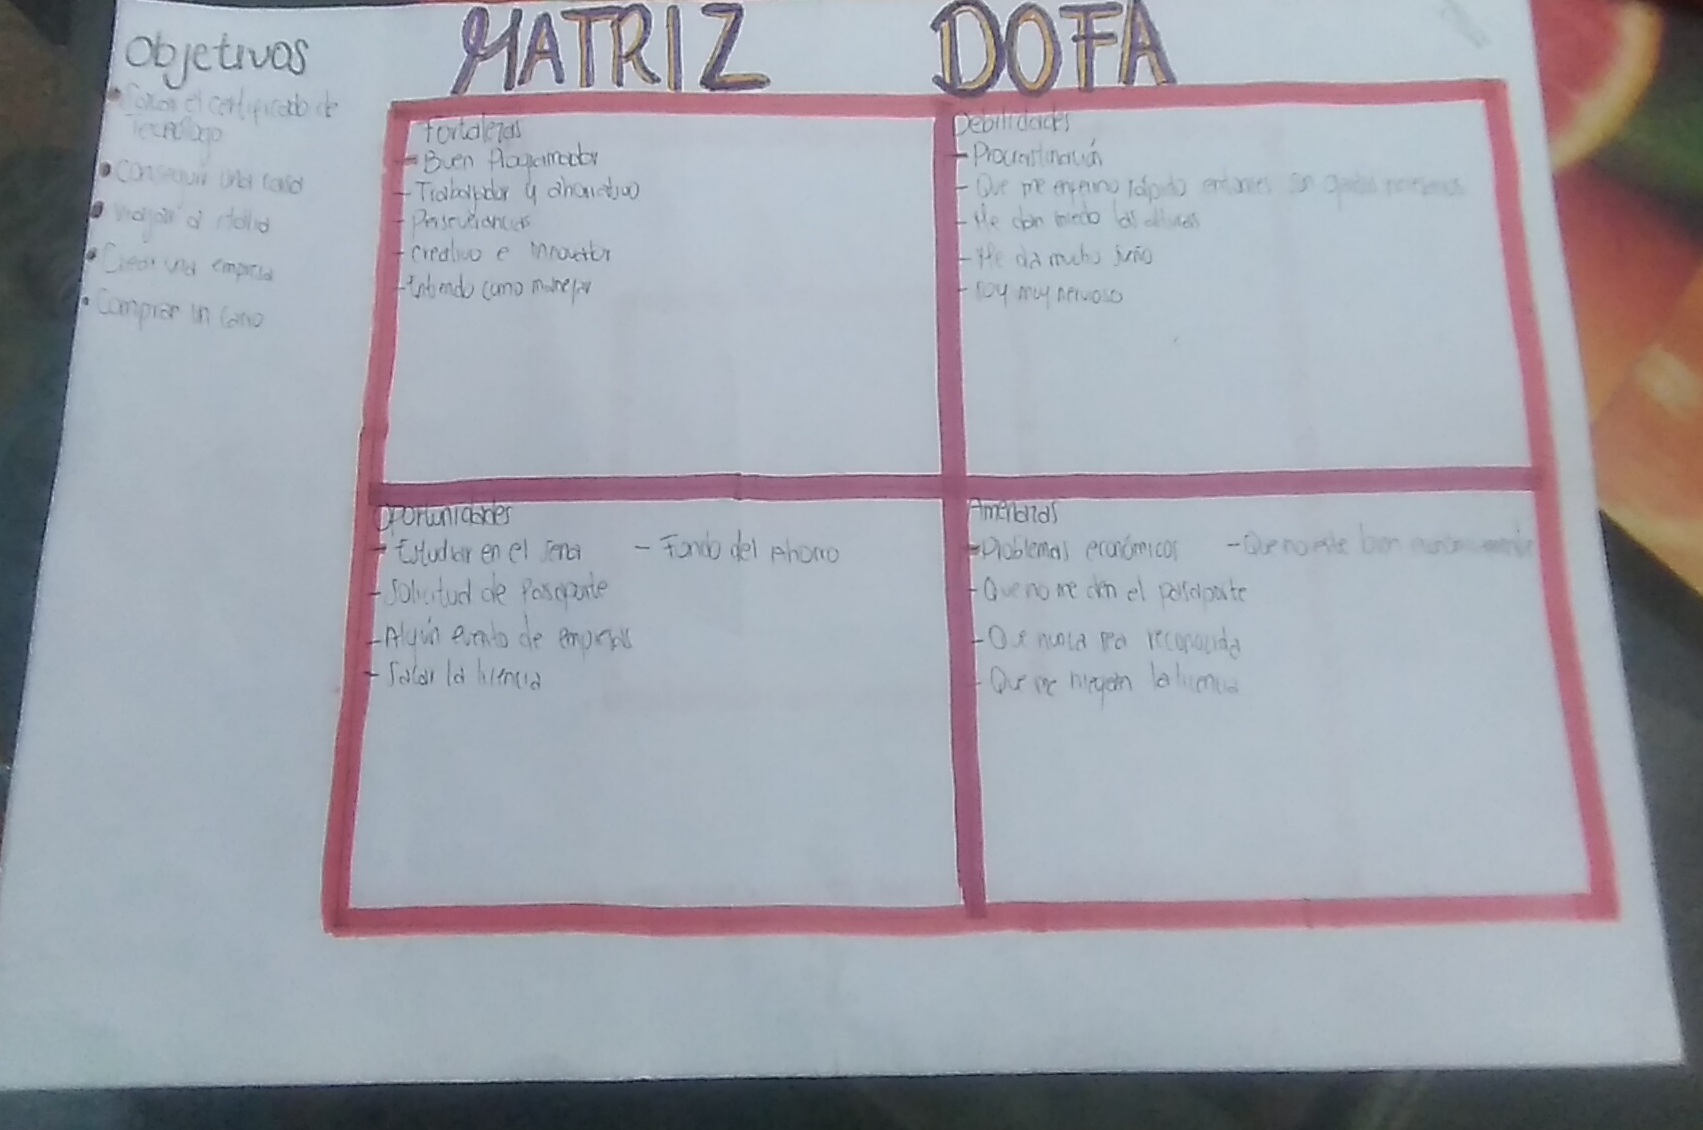 MATRIZ DOFA
Objetivos
Sacar el certificado de
Tecnólogo
Conseguir una casa
viajar a Italia
Crear una empresa
Comprar un carro
Fortalezas
- Buen Programador
- Trabajador y ahorrativo
- Perseverancias
- Creativo e innovador
- Entiendo como manejar
Debilidades
- Procrastinación
- Que me enfermo rápido entonces son
- Me dan miedo las alturas
- Me da mucho sueño
- soy muy nervioso
Oportunidades
- Estudiar en el sena - Fondo del Ahorro
- Solicitud de Pasaporte
- Algún evento de empresas
- Sacar la licencia
Amenazas
- Problemas económicos - Que no este bien
- Que no me den el pasaporte
- Que nunca sea reconocida
- Que me nieguen la licencia